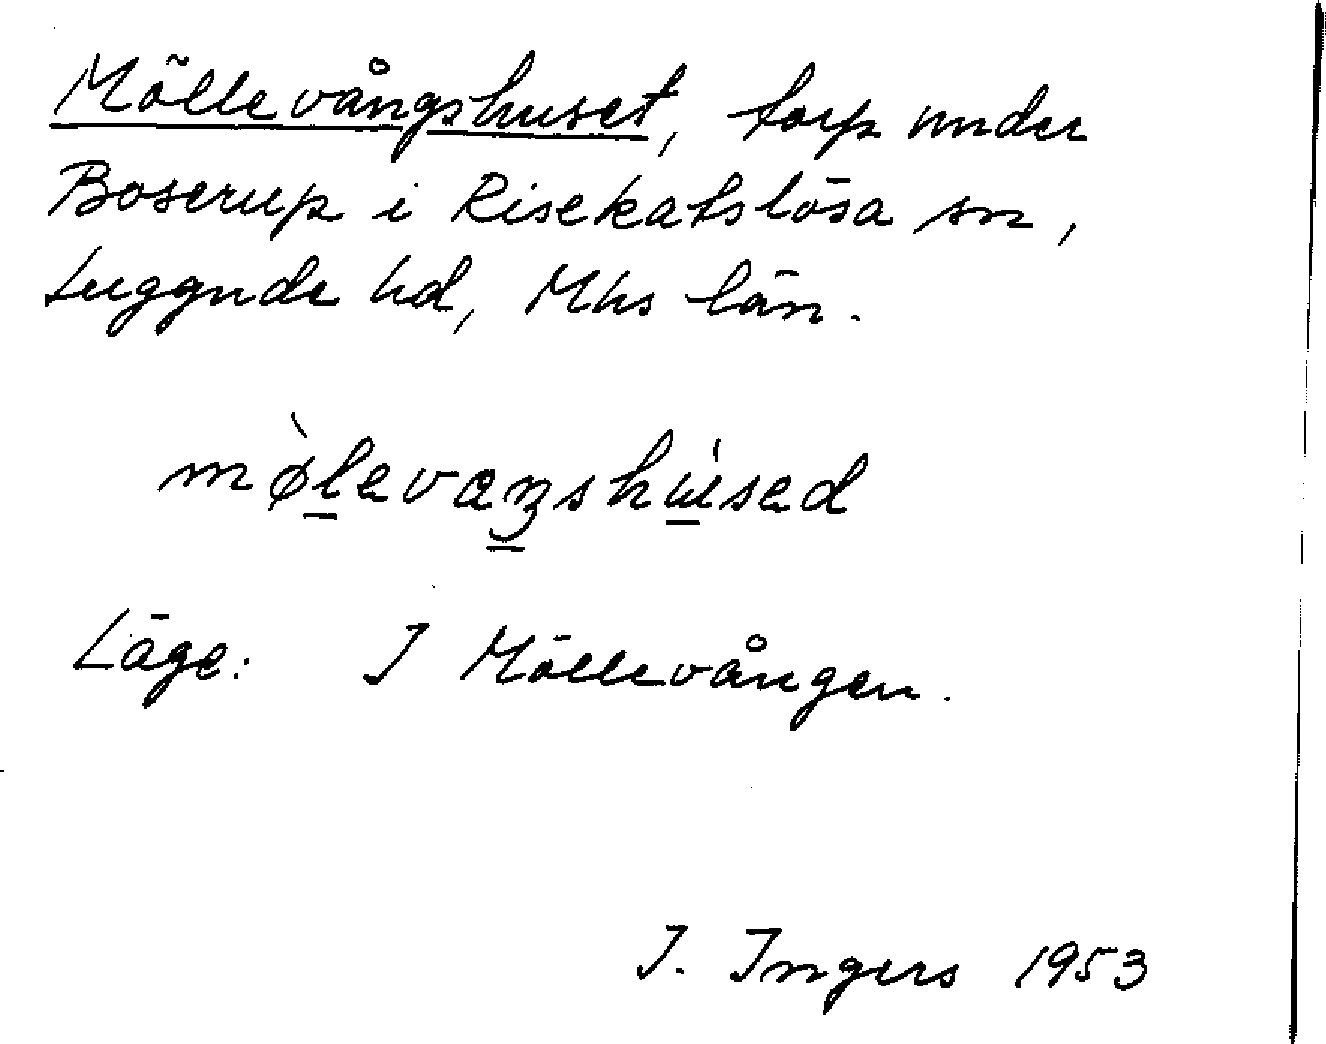 Möllevångshuset, torp under
Boserup i Risekatslösa sn,
Luggude hd, Mhs län.
mø̀levaŋshúsed
Läge: I Möllevången.
I. Ingers 1953